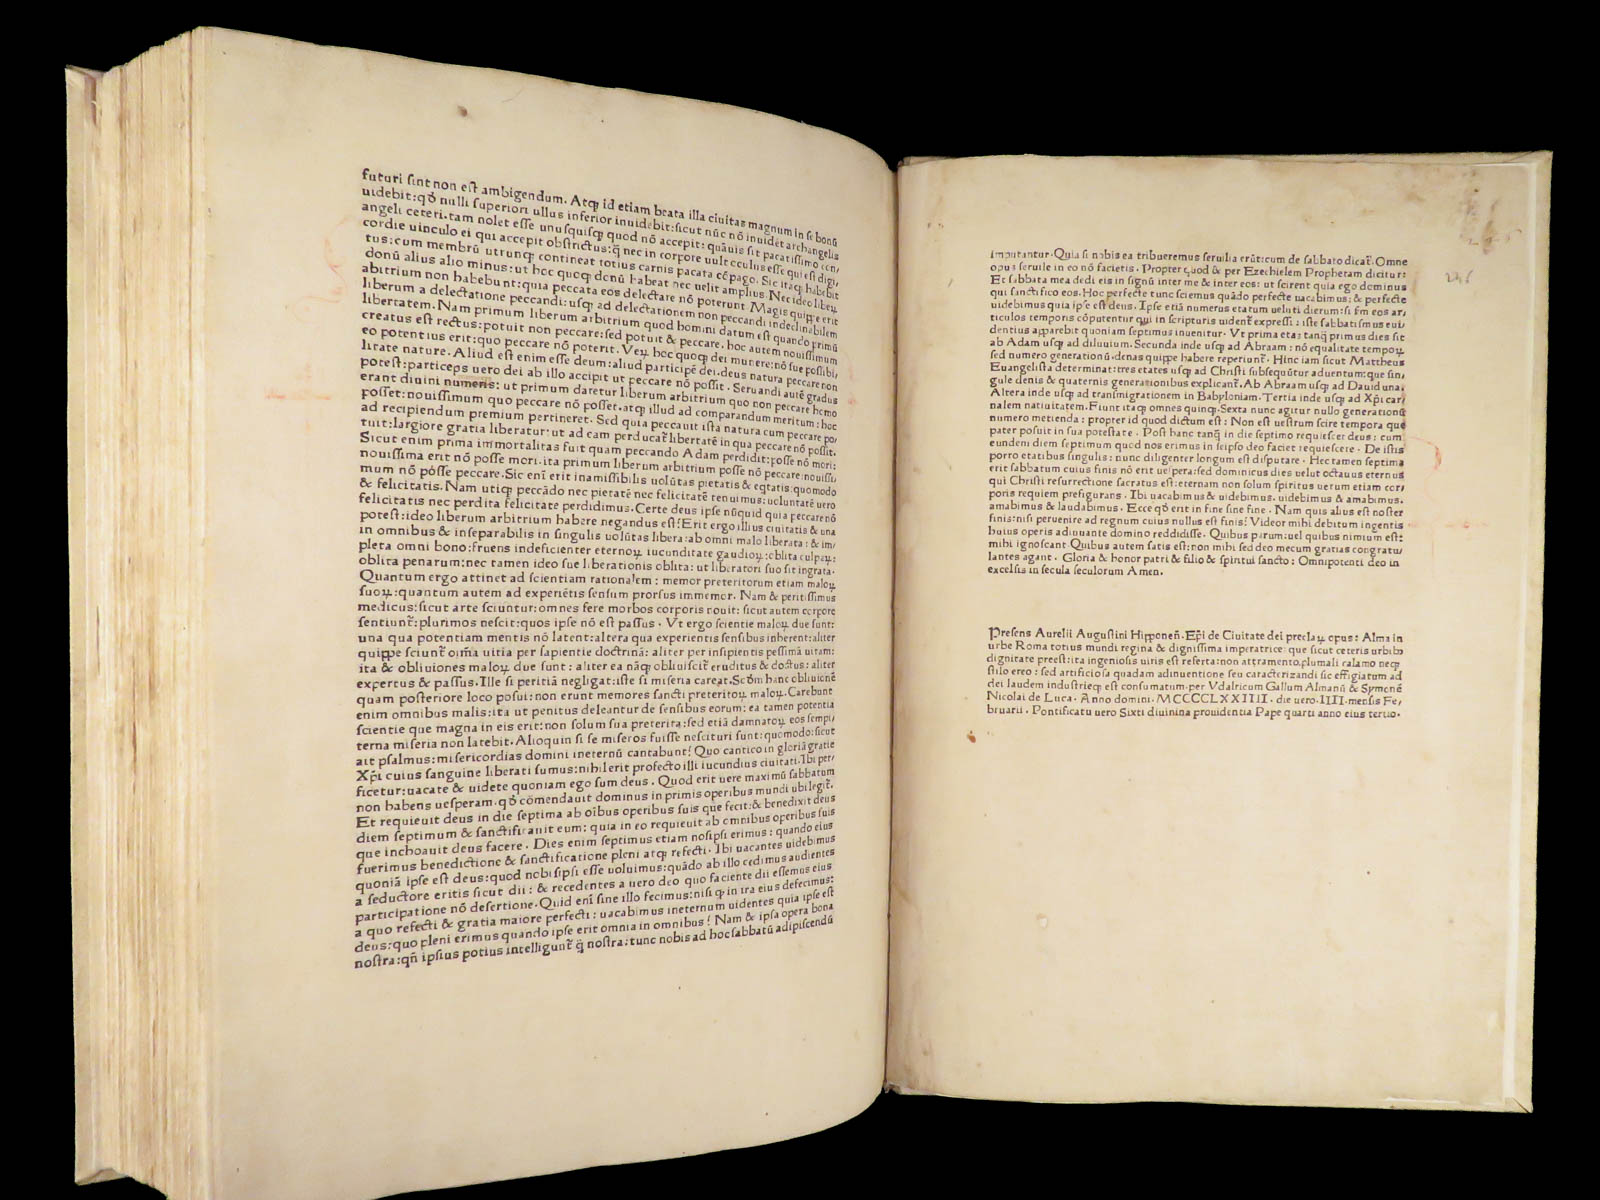 futuri sint non est ambigendum. Atqꝫ id etiam beata illa ciuitas magnum in se bonū
uidebit: qd̄ nulli superiori ullus inferior inuidebit: sicut nūc nō inuidēt archangelis
angeli ceteri. tam nolet esse unusquisqꝫ quod nō accepit: quāuis sit pacatissimo con/
cordie uinculo ei qui accepit obstrictus: q̄ nec in corpore uult oculus esse qui est digi/
tus: cum membrū utrunqꝫ contineat totius carnis pacata cōpago. Sic itaqꝫ habebit
donū alius alio minus: ut hoc quoqꝫ donū habeat nec uelit amplius. Nec ideo liberū
abitrium non habebunt: quia peccata eos delectare nō poterunt. Magis quippe erit
liberum a delectatione peccandi: usqꝫ ad delectationem non peccandi indeclinabilem
libertatem. Nam primum liberum arbitrium quod homini datum est quando primū
creatus est rectus: potuit non peccare: sed potuit & peccare. hoc autem nouissimum
eo potentius erit: quo peccare nō poterit. Veꝝ hoc quoqꝫ dei munere: nō sue possibi/
litate nature. Aliud est enim esse deum: aliud participē dei. deus natura peccare non
potest: particeps uero dei ab illo accipit ut peccare nō possit. Seruandi autē gradus
erant diuini numeris: ut primum daretur liberum arbitrium quo non peccare homo
posset: nouissimum quo peccare nō posset. atqꝫ illud ad comparandum meritum: hoc
ad recipiendum premium pertineret. Sed quia peccauit ista natura cum peccare po/
tuit: largiore gratia liberatur: ut ad eam perducat̄ libertatē in qua peccare nō possit.
Sicut enim prima immortalitas fuit quam peccando Adam perdidit: posse nō mori:
nouissima erit nō posse mori. ita primum liberum arbitrium posse nō peccare: nouissi/
mum nō posse peccare. Sic eni erit inamissibilis uolūtas pietatis & eqtatis: quomodo
& felicitatis. Nam utiqꝫ peccādo nec pietatē nec felicitatē tenuimus: uoluntatē uero
felicitatis nec perdita felicitate perdidimus. Certe deus ipse nūquid quia peccare nō
potest: ideo liberum arbitrium habere negandus est? Erit ergo illius ciuitatis & una
in omnibus & inseparabilis in singulis uolūtas libera: ab omni malo liberata: & im/
pleta omni bono: fruens indeficienter eternoꝝ iucunditate gaudioꝝ: oblita culpaꝝ:
oblita penarum: nec tamen ideo sue liberationis oblita: ut liberatori suo sit ingrata.
Quantum ergo attinet ad scientiam rationalem: memor preteritorum etiam maloꝝ
suoꝝ: quantum autem ad experiētis sensum prorsus immemor. Nam & peritissimus
medicus: sicut arte sciuntur: omnes fere morbos corporis nouit: sicut autem corpore
sentiunt̄: plurimos nescit: quos ipse nō est passus. Vt ergo scientie maloꝝ due sunt:
una qua potentiam mentis nō latent: altera qua experientis sensibus inherent: aliter
quippe sciunt̄ oīma uitia per sapientie doctrinā: aliter per insipientis pessimā uitam:
ita & obliuiones maloꝝ due sunt: aliter ea nāqꝫ obliuiscit̄ eruditus & doctus: aliter
expertus & passus. Ille si peritiā negligat: iste si miseria careat. Scd̄m hanc obliuionē
quam posteriore loco posui: non erunt memores sancti preteritoꝝ maloꝝ. Carebunt
enim omnibus malis: ita ut penitus deleantur de sensibus eorum: ea tamen potentia
scientie que magna in eis erit: non solum sua preterita: sed etiā damnatoꝝ eos sempi/
terna miseria non latebit. Alioquin si se miseros fuisse nescituri sunt: quomodo: sicut
ait psalmus: misericordias domini ineternū cantabunt? Quo cantico in gloriā gratie
Xp̄i cuius sanguine liberati sumus: nihil erit profecto illi iucundius ciuitati. Ibi per/
ficetur: uacate & uidete quoniam ego sum deus. Quod erit uere maximū sabbatum
non habens uesperam. qd̄ cōmendauit dominus in primis operibus mundi ubi legit̄.
Et requieuit deus in die septima ab oībus operibus suis que fecit: & benedixit deus
diem septimum & sanctificauit eum: quia in eo requieuit ab omnibus operibus suis
que inchoauit deus facere. Dies enim septimus etiam nosipsi erimus: quando eius
fuerimus benedictione & sanctificatione pleni atqꝫ refecti. Ibi uacantes uidebimus
quoniā ipse est deus: quod nobisipsi esse uoluimus: quādo ab illo cedimus audientes
a seductore eritis sicut dii: & recedentes a uero deo quo faciente dii essemus eius
participatione nō desertione. Quid eni sine illo fecimus: nisi qꝫ in ira eius defecimus:
a quo refecti & gratia maiore perfecti: uacabimus ineternum uidentes quia ipse est
deus: quo pleni erimus quando ipse erit omnia in omnibus? Nam & ipsa opera bona
nostra: qn̄ ipsius potius intelligunt̄ q̄ nostra: tunc nobis ad hoc sabbatū adipiscendū
imputantur. Quia si nobis ea tribueremus seruilia erūt: cum de sabbato dicat̄. Omne
opus seruile in eo nō facietis. Propter quod & per Ezechielem Prophetam dicitur:
Et sabbata mea dedi eis in signū inter me & inter eos: ut scirent quia ego dominus
qui sanctifico eos. Hoc perfecte tunc sciemus quādo perfecte uacabimus: & perfecte
uidebimus quia ipse est deus. Ipse etiā numerus etatum ueluti dierum: si fm eos ar/
ticulos temporis cōputentur qui in scripturis uident̄ expressi: iste sabbatismus eui/
dentius apparebit quoniam septimus inuenitur. Vt prima etas: tanqꝫ primus dies sit
ab Adam usqꝫ ad diluuium. Secunda inde usqꝫ ad Abraam: nō equalitate tempoꝝ
sed numero generationū. denas quippe habere reperiunt̄. Hinc iam sicut Mattheus
Euangelista determinat: tres etates usqꝫ ad Christi subsequūtur aduentum: que sin/
gule denis & quaternis generationibus explicant̄. Ab Abraam usqꝫ ad Dauid una.
Altera inde usqꝫ ad transmigrationem in Babyloniam. Tertia inde usqꝫ ad Xp̄i car/
nalem natiuitatem. Fiunt itaqꝫ omnes quinqꝫ. Sexta nunc agitur nullo generationū
numero metienda: propter id quod dictum est: Non est uestrum scire tempora que
pater posuit in sua potestate. Post hanc tanqꝫ in die septimo requiescet deus: cum
eundem diem septimum quod nos erimus in seipso deo faciet requiescere. De istis
porro etatibus singulis: nunc diligenter longum est disputare. Hec tamen septima
erit sabbatum cuius finis nō erit uespera: sed dominicus dies uelut octauus eternus
qui Christi resurrectione sacratus est: eternam non solum spiritus uerum etiam cor/
poris requiem prefigurans. Ibi uacabimus & uidebimus. uidebimus & amabimus.
amabimus & laudabimus. Ecce qd̄ erit in fine sine fine. Nam quis alius est noster
finis: nisi peruenire ad regnum cuius nullus est finis? Videor mihi debitum ingentis
huius operis adiuuante domino reddidisse. Quibus parum: uel quibus nimium est:
mihi ignoscant. Quibus autem satis est: non mihi sed deo mecum gratias congratu/
lantes agant. Gloria & honor patri & filio & spiritui sancto: Omnipotenti deo in
excelsis in secula seculorum Amen.
Presens Aurelii Augustini Hipponeñ. Ep̄i de Ciuitate dei preclaꝝ opus: Alma in
urbe Roma totius mundi regina & dignissima imperatrice: que sicut ceteris urbibꝰ
dignitate preest: ita ingeniosis uiris est referta: non attramento, plumali calamo neqꝫ
stilo ereo: sed artificiosa quadam adinuentione seu caracterizandi sic effigiatum ad
dei laudem industrieqꝫ est consumatum. per Vdalricum Gallum Almanū & Symonē
Nicolai de Luca. Anno domini. MCCCCLXXIIII. die uero. IIII. mensis Fe/
bruarii. Pontificatu uero Sixti diuinina prouidentia Pape quarti anno eius tertio.
246